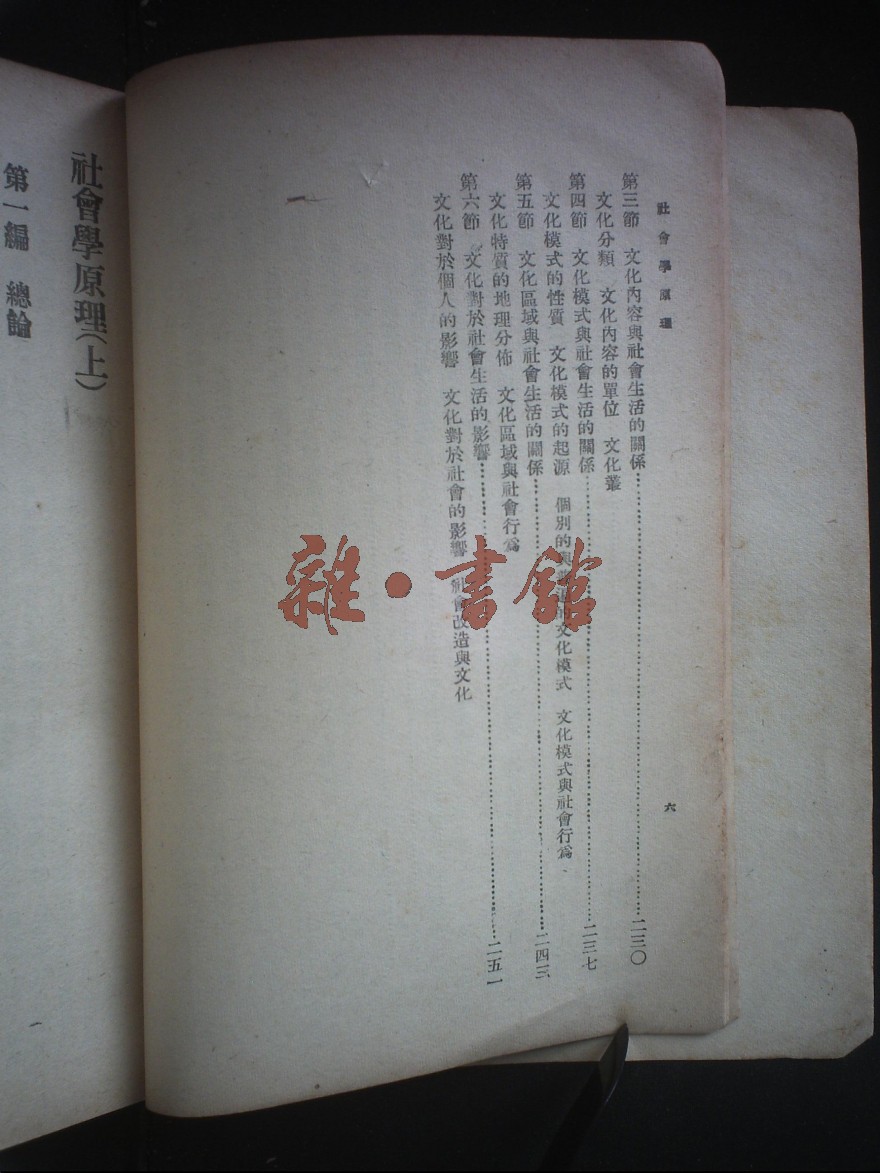 社會學原理
六
第三節 文化內容與社會生活的關係……二三〇
文化分類 文化內容的單位 文化叢
第四節 文化模式與社會生活的關係……二三七
文化模式的性質 文化模式的起源 個別的與 的文化模式 文化模式與社會行爲
第五節 文化區域與社會生活的關係……二四三
文化特質的地理分佈 文化區域與社會行爲
第六節 文化對於社會生活的影響……二五一
文化對於個人的影響 文化對於社會的影響 社會改造與文化
社會學原理(上)
第一編 總論
雜·書館